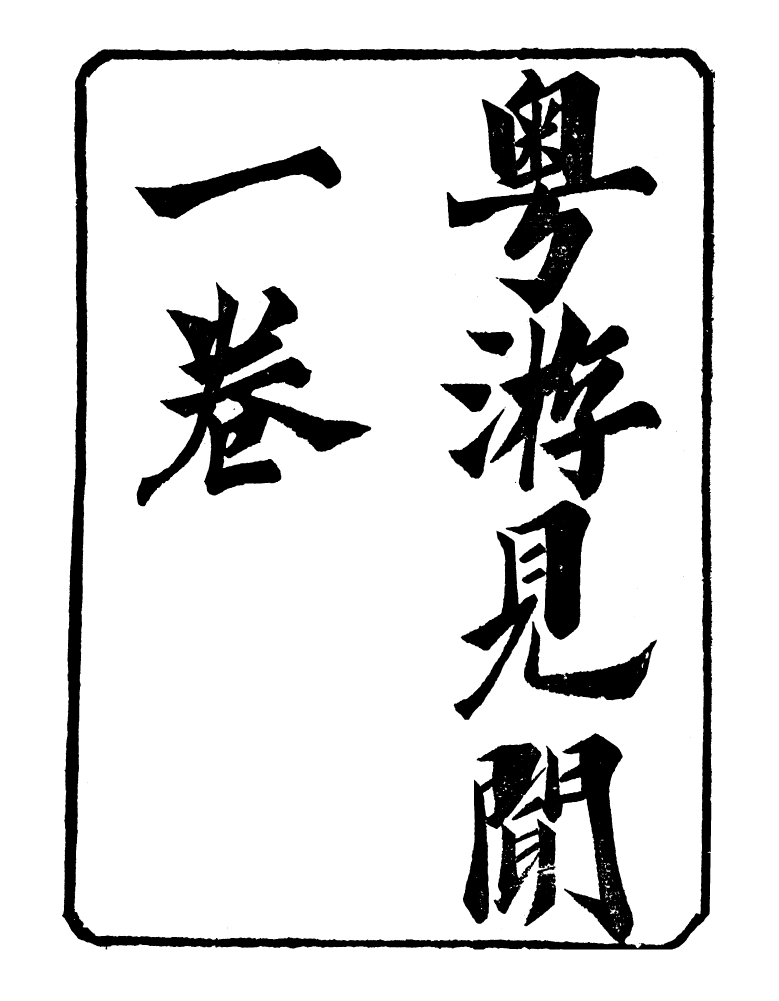 粵游見聞
一卷